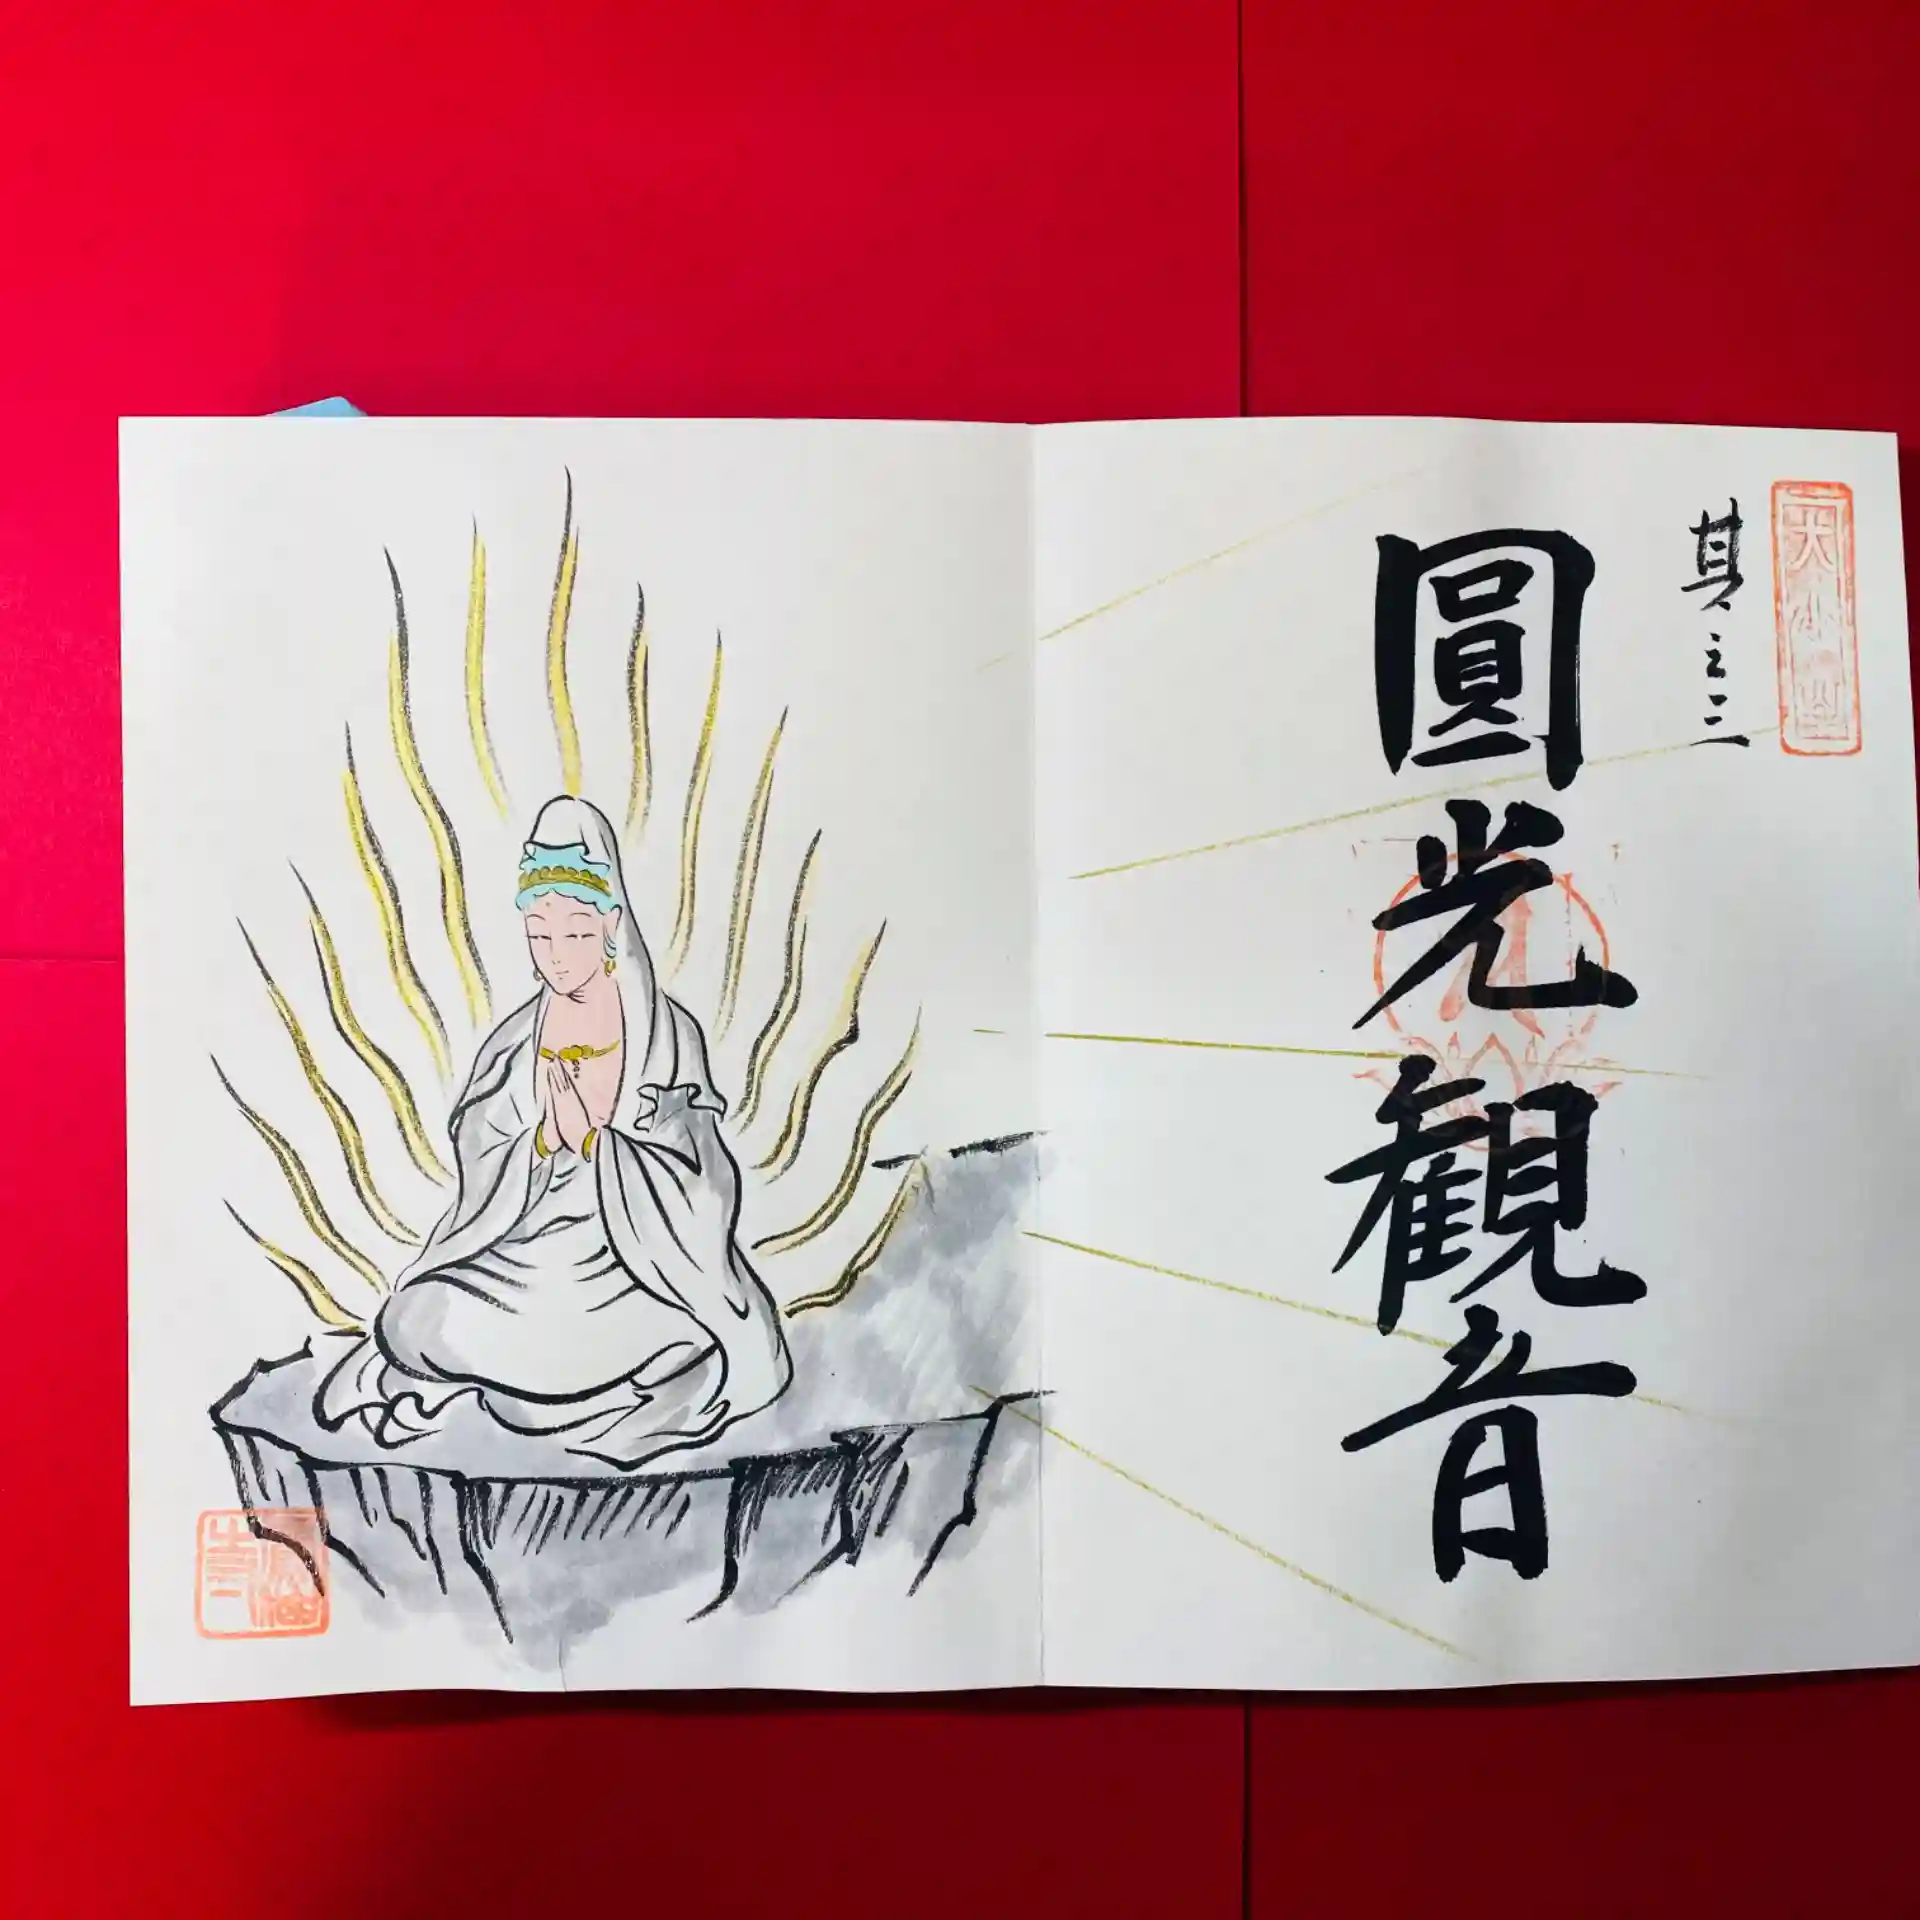 其之三
圓光観音